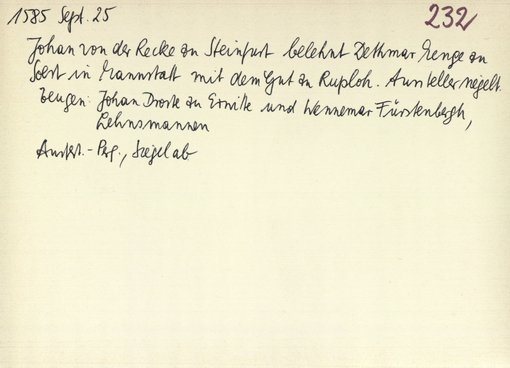 1585 Sept. 25
232
Johan von der Recke zu Steinfurt belehnt Dethmar Menge zu
Soest in Mannstatt mit dem Gut zu Ruploh. Aussteller siegelt.
Zeugen: Johan Droste zu Erwitte und Wennemar Fürstenbergh,
Lehnsmannen
Ausfert.-Perg., Siegel ab